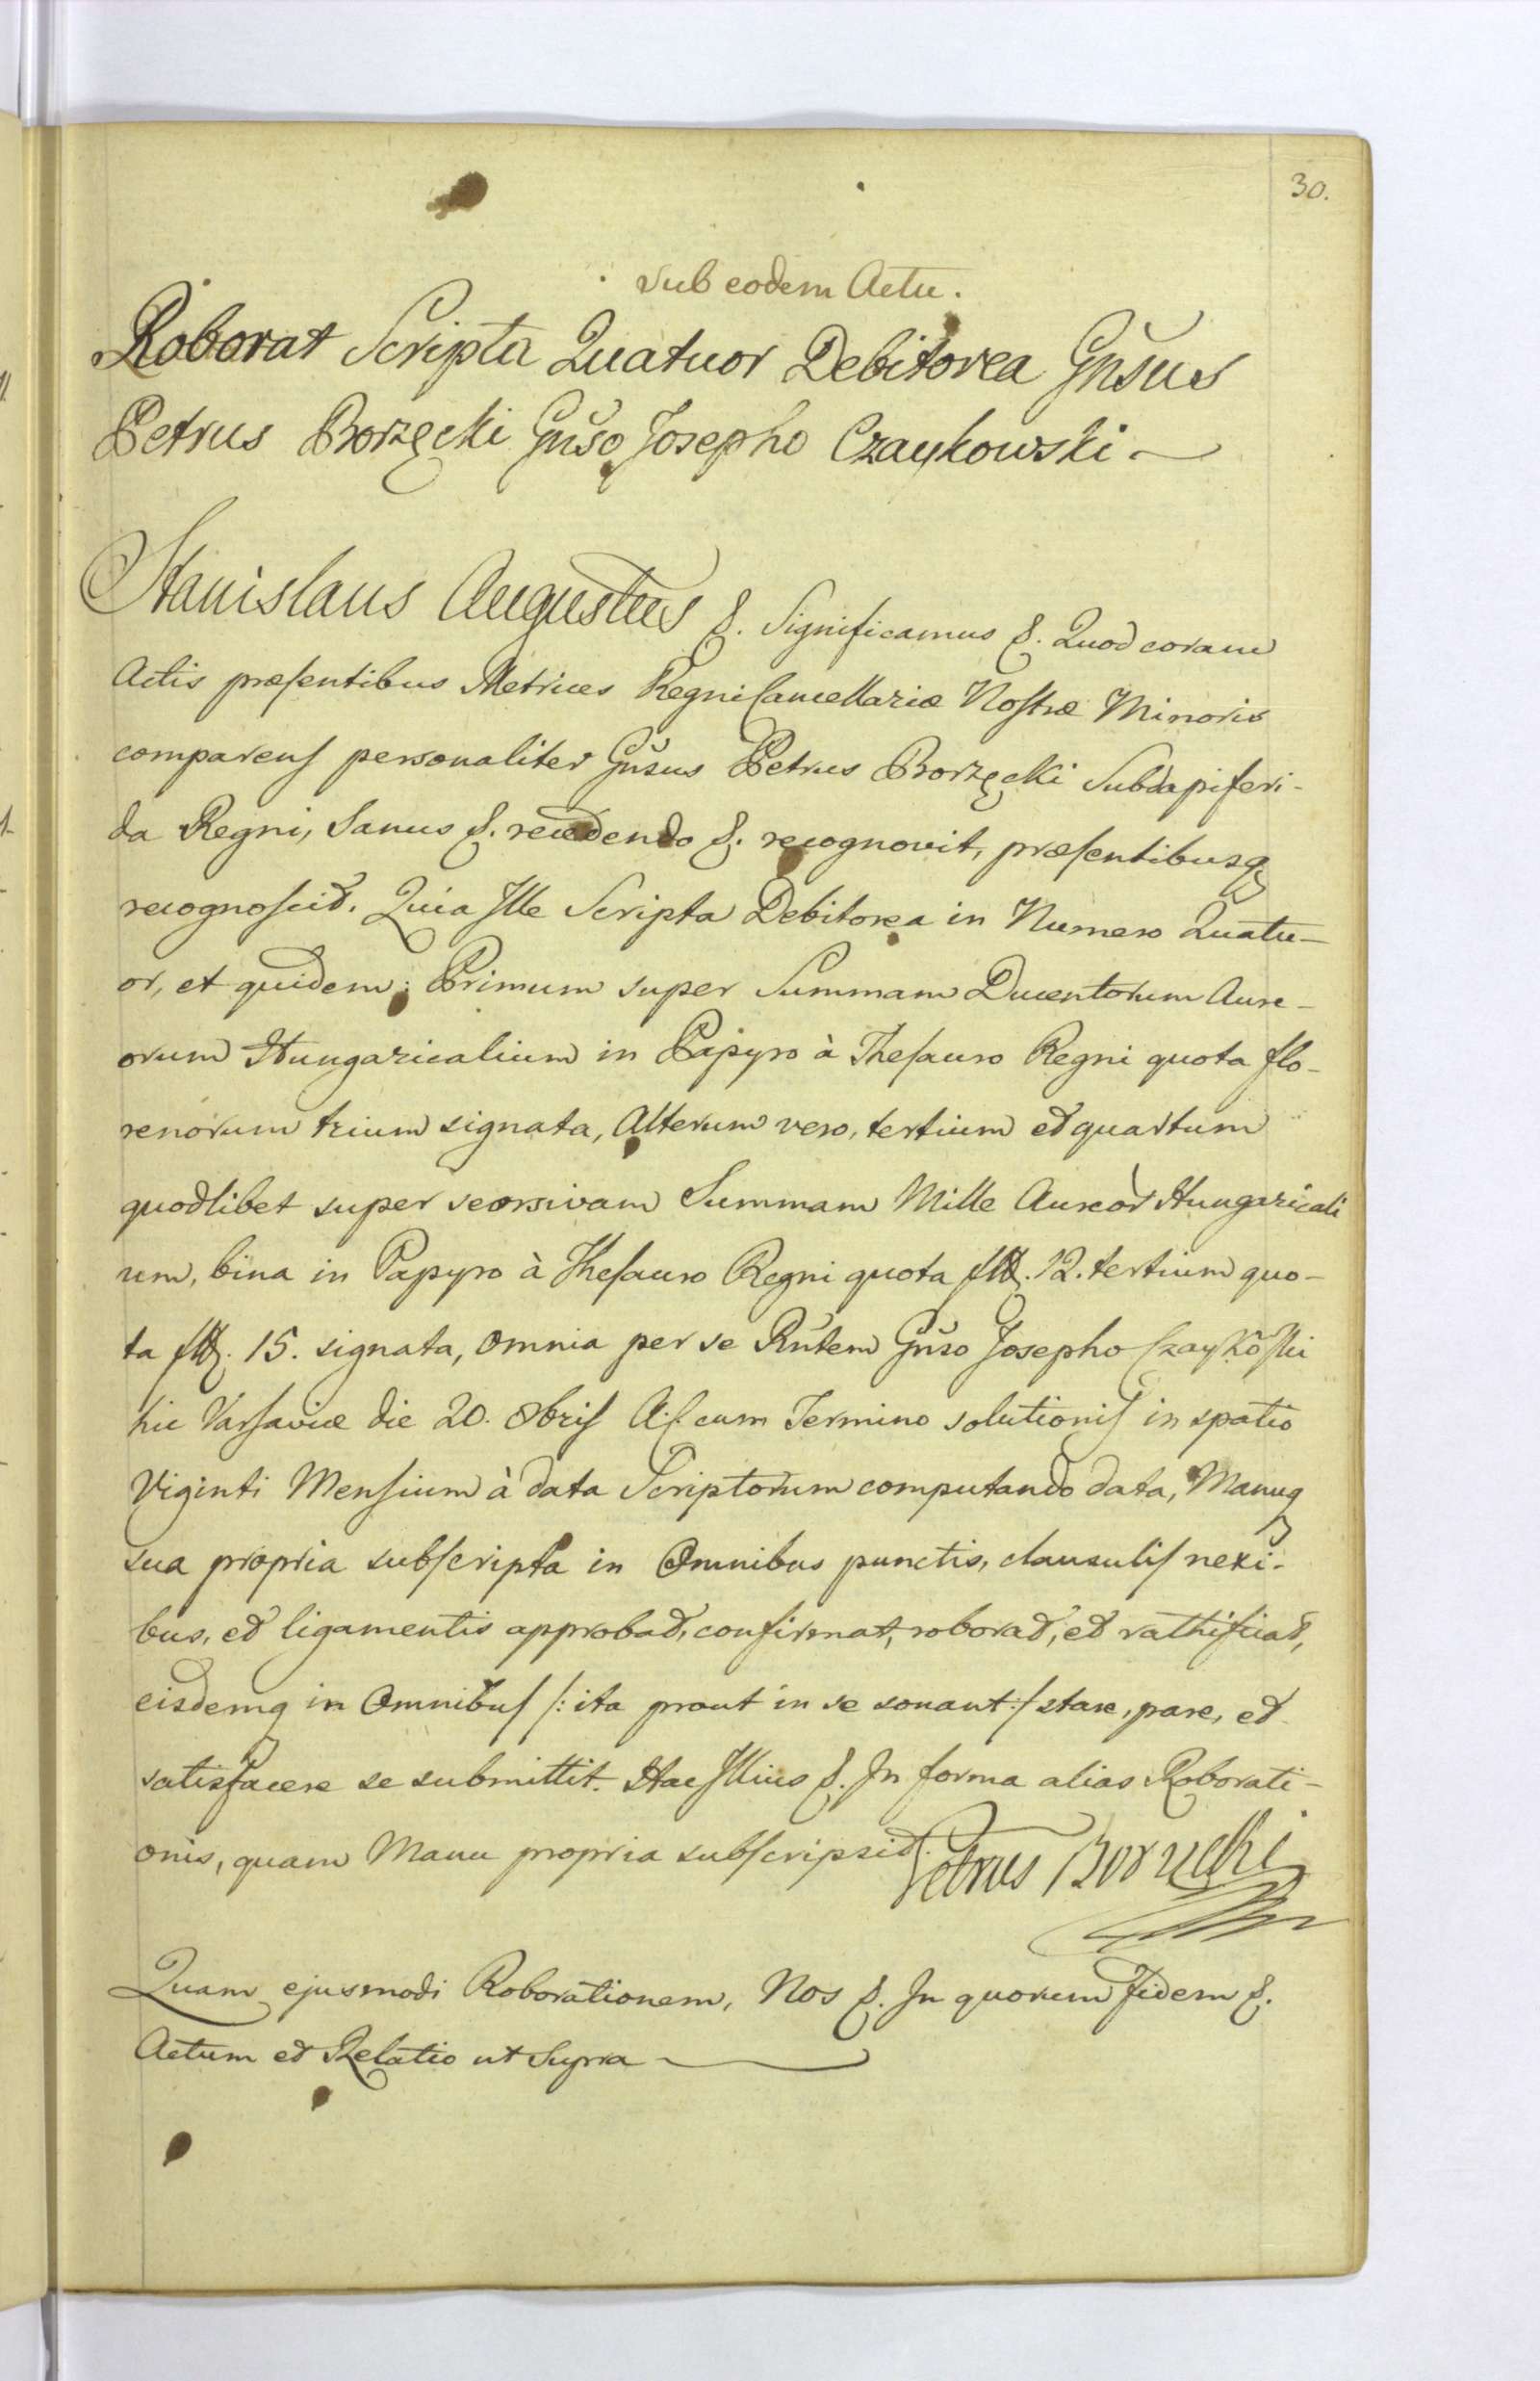 30.
Sub eodem Actu.
Roborat Scripta Quatuor Debitorea Gn̄sus
Petrus Borzęcki Gn̄so Josepho Czaykowski
Stanislaus Augustus &. Significamus &. Quod coram
Actis præsentibus Metrices Regni Cancellariæ Nostræ Minoris
comparens personaliter Gn̄sus Petrus Borzęcki Subdapiferi-
da Regni, Sanus &. recedendo &. recognovit, præsentibusq
recognoscit. Quia Ille Scripta Debitorea in Numero Quatu-
or, et quidem: Primum super Summam Ducentorum Aure-
orum Hungaricalium in Papyro à Thesauro Regni quota flo-
renorum trium signata, Alterum vero, tertium et quartum
quodlibet super seorsivam Summam Mille Aureor Hungaricali
um, bina in Papyro à Thesauro Regni quota fl. 12. tertium quo-
ta fl. 15. signata, omnia per se Rn̄tem Gn̄so Josepho Czaykôski
hic Varsaviæ die 20. 8bris A. c. cum Termino solutionis in spatio
Viginti Mensium à data Scriptorum computando data, Manuq
sua propria subscripta in Omnibus punctis, clausulis nexi-
bus, et ligamentis approbat, confirmat, roborat, et rathificat,
eisdemq in Omnibus /: ita prout in se sonant :/ stare, pare, et
satisfacere se submittit. Hac Illius &. In forma alias Roborati-
onis, quam Manu propria subscripsit. Petrus Borzęcki
Quam ejusmodi Roborationem, Nos &. In quorum Fidem &.
Actum et Relatio ut Supra